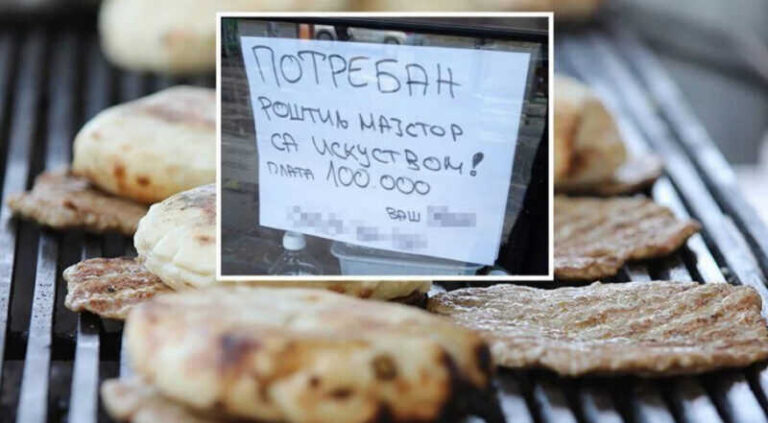 ПОТРЕБАН
РОШТИЉ МАЈСТОР
СА ИСКУСТВОМ!
ПЛАТА 100.000
ВАШ